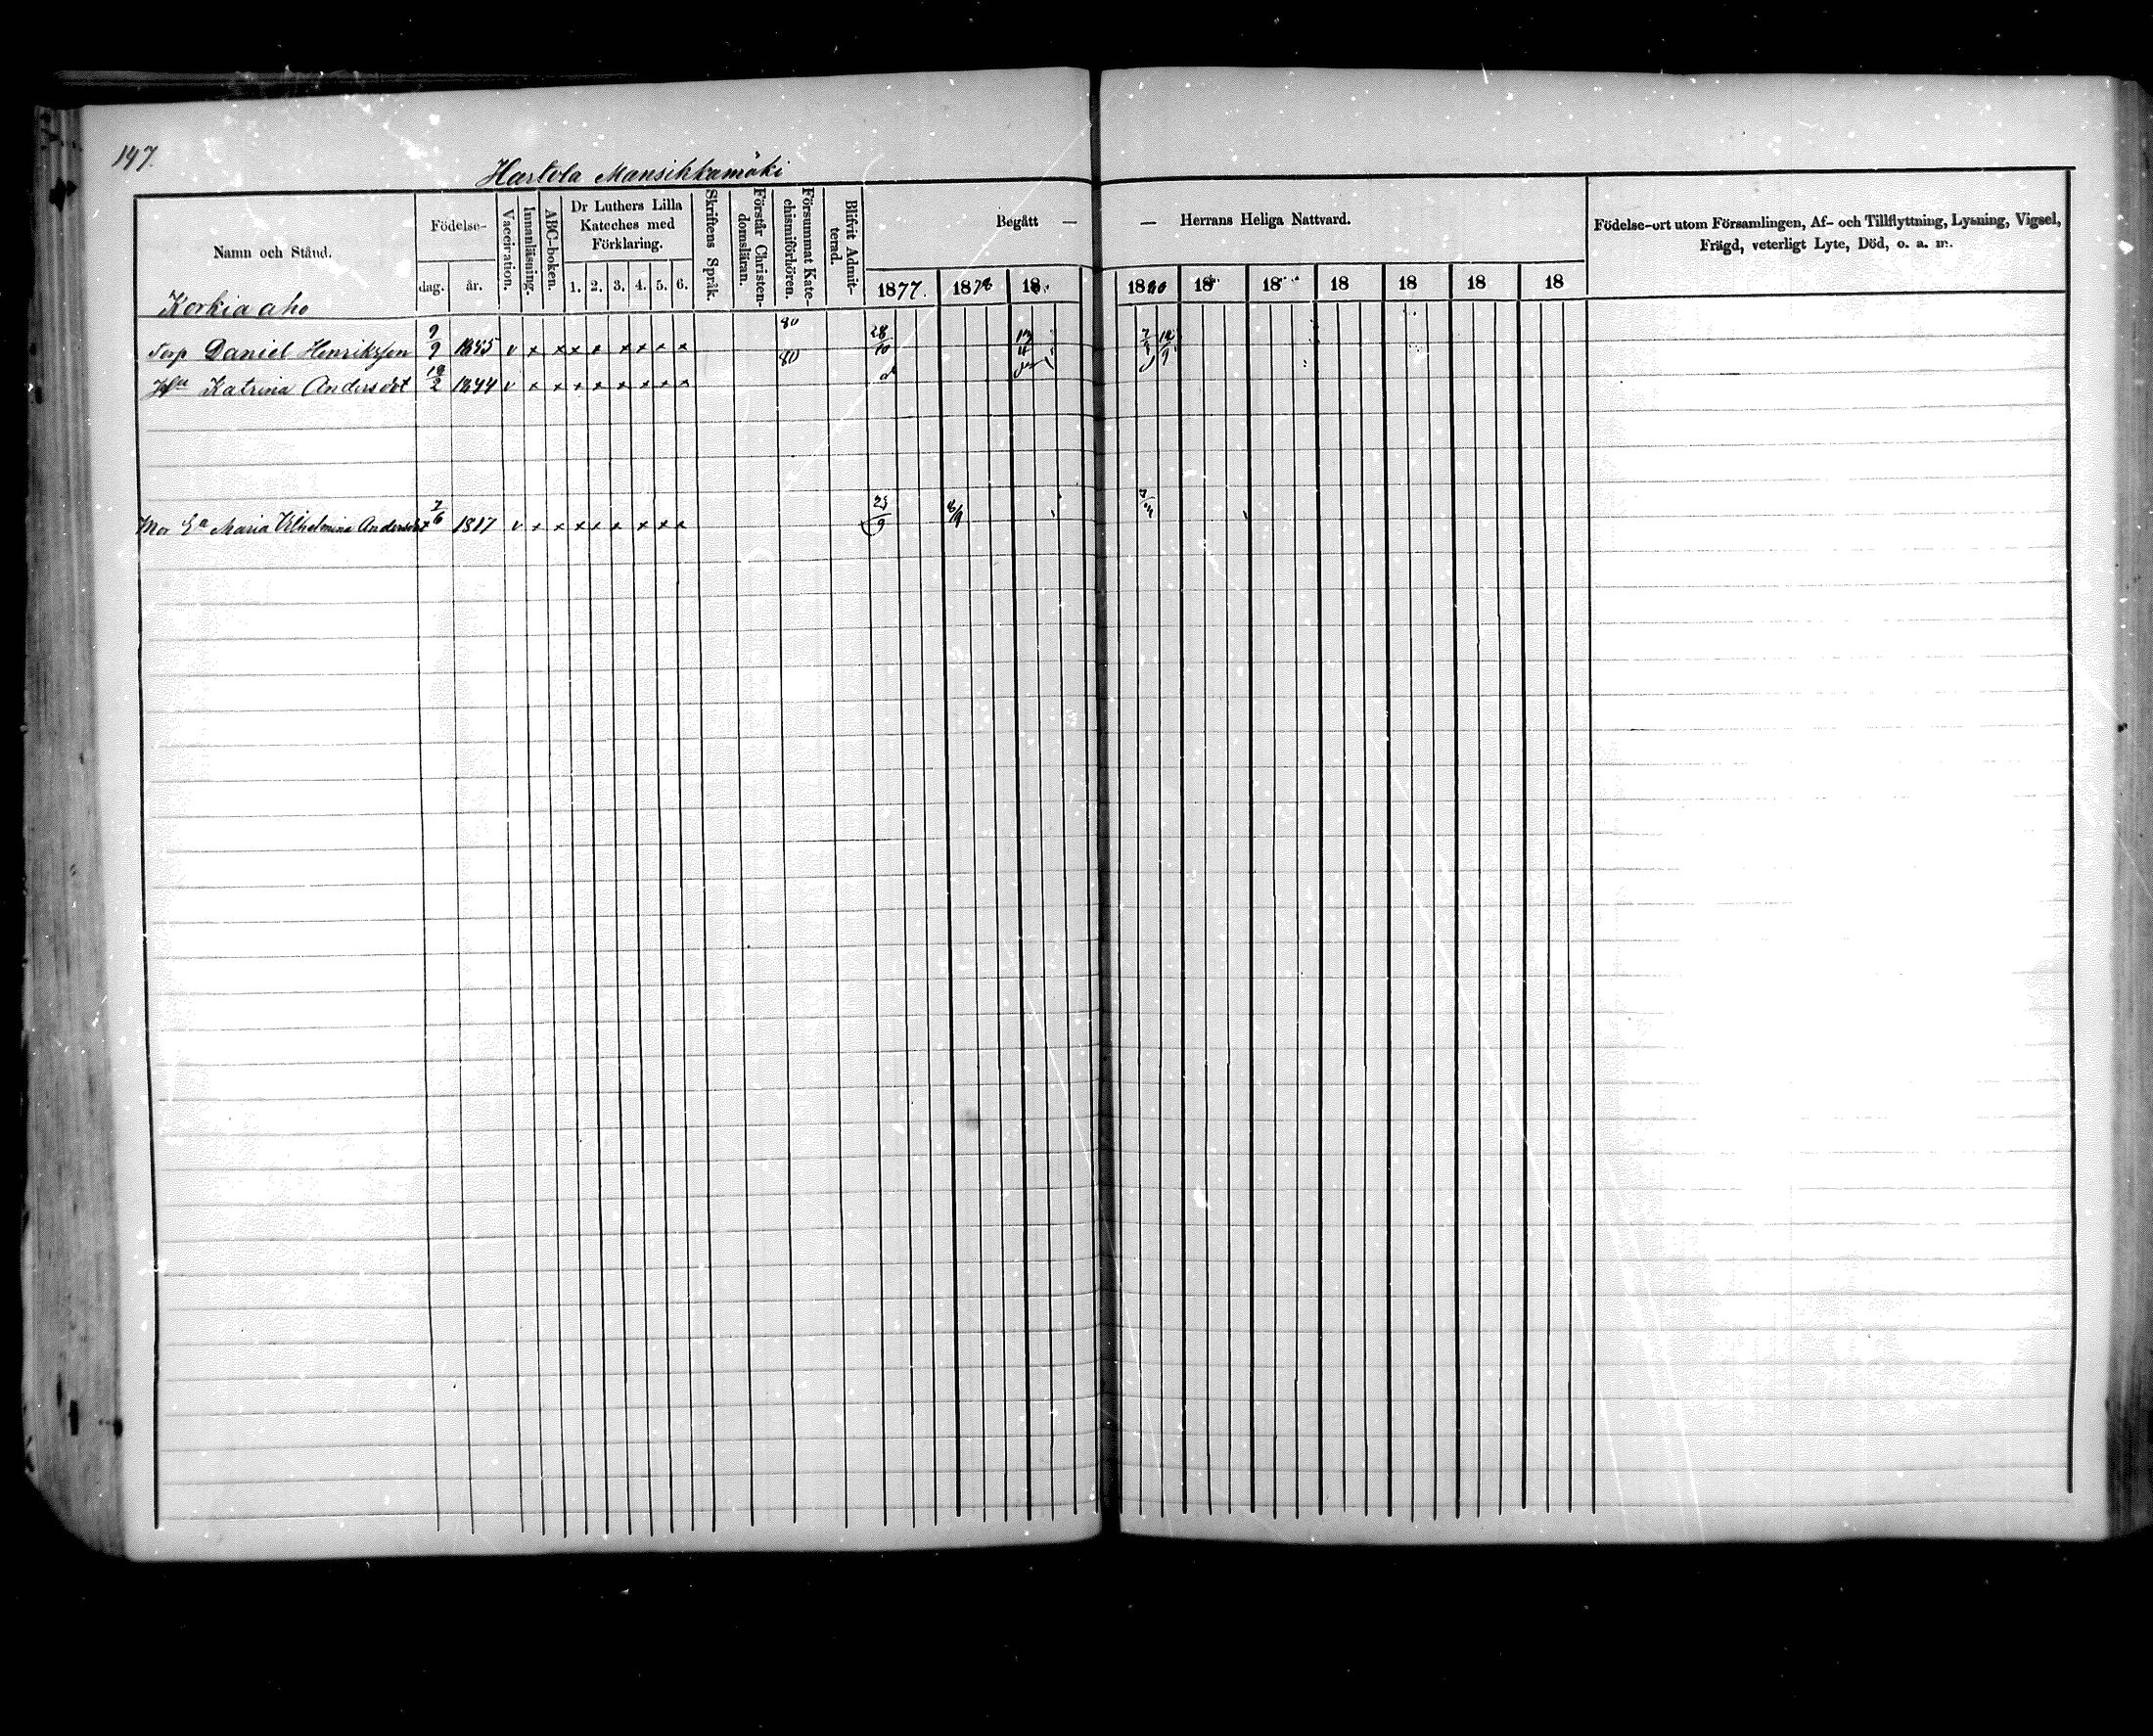 147.
Harlola Mansikkamäki
Namn och Stånd. Födelse- dag. år. Vaccination. Innanläsning. ABC-boken. Dr Luthers Lilla Kateches med Förklaring. 1. 2. 3. 4. 5. 6. Skriftens Språk. Förstår Christendomsläran. Försummat Katechismiförhören. Blifvit Admitterad. Begått — — Herrans Heliga Nattvard. Födelse-ort utom Församlingen, Af- och Tillflyttning, Lysning, Vigsel, Frägd, veterligt Lyte, Död, o. a. m.
1877. 1878 18 1880 18 18 18 18 18 18
Korkia aho
Torp Daniel Henriksson 9/9 1845 v x x x x x x x x 80 28/10 17/4
Hu Katrina Andersdot 19/2 1844 v x x x x x x x x 80
Mor Ea Maria Vilhelmina Andersdot 7/6 1817 v x x x x x x x x 23/9 8/9